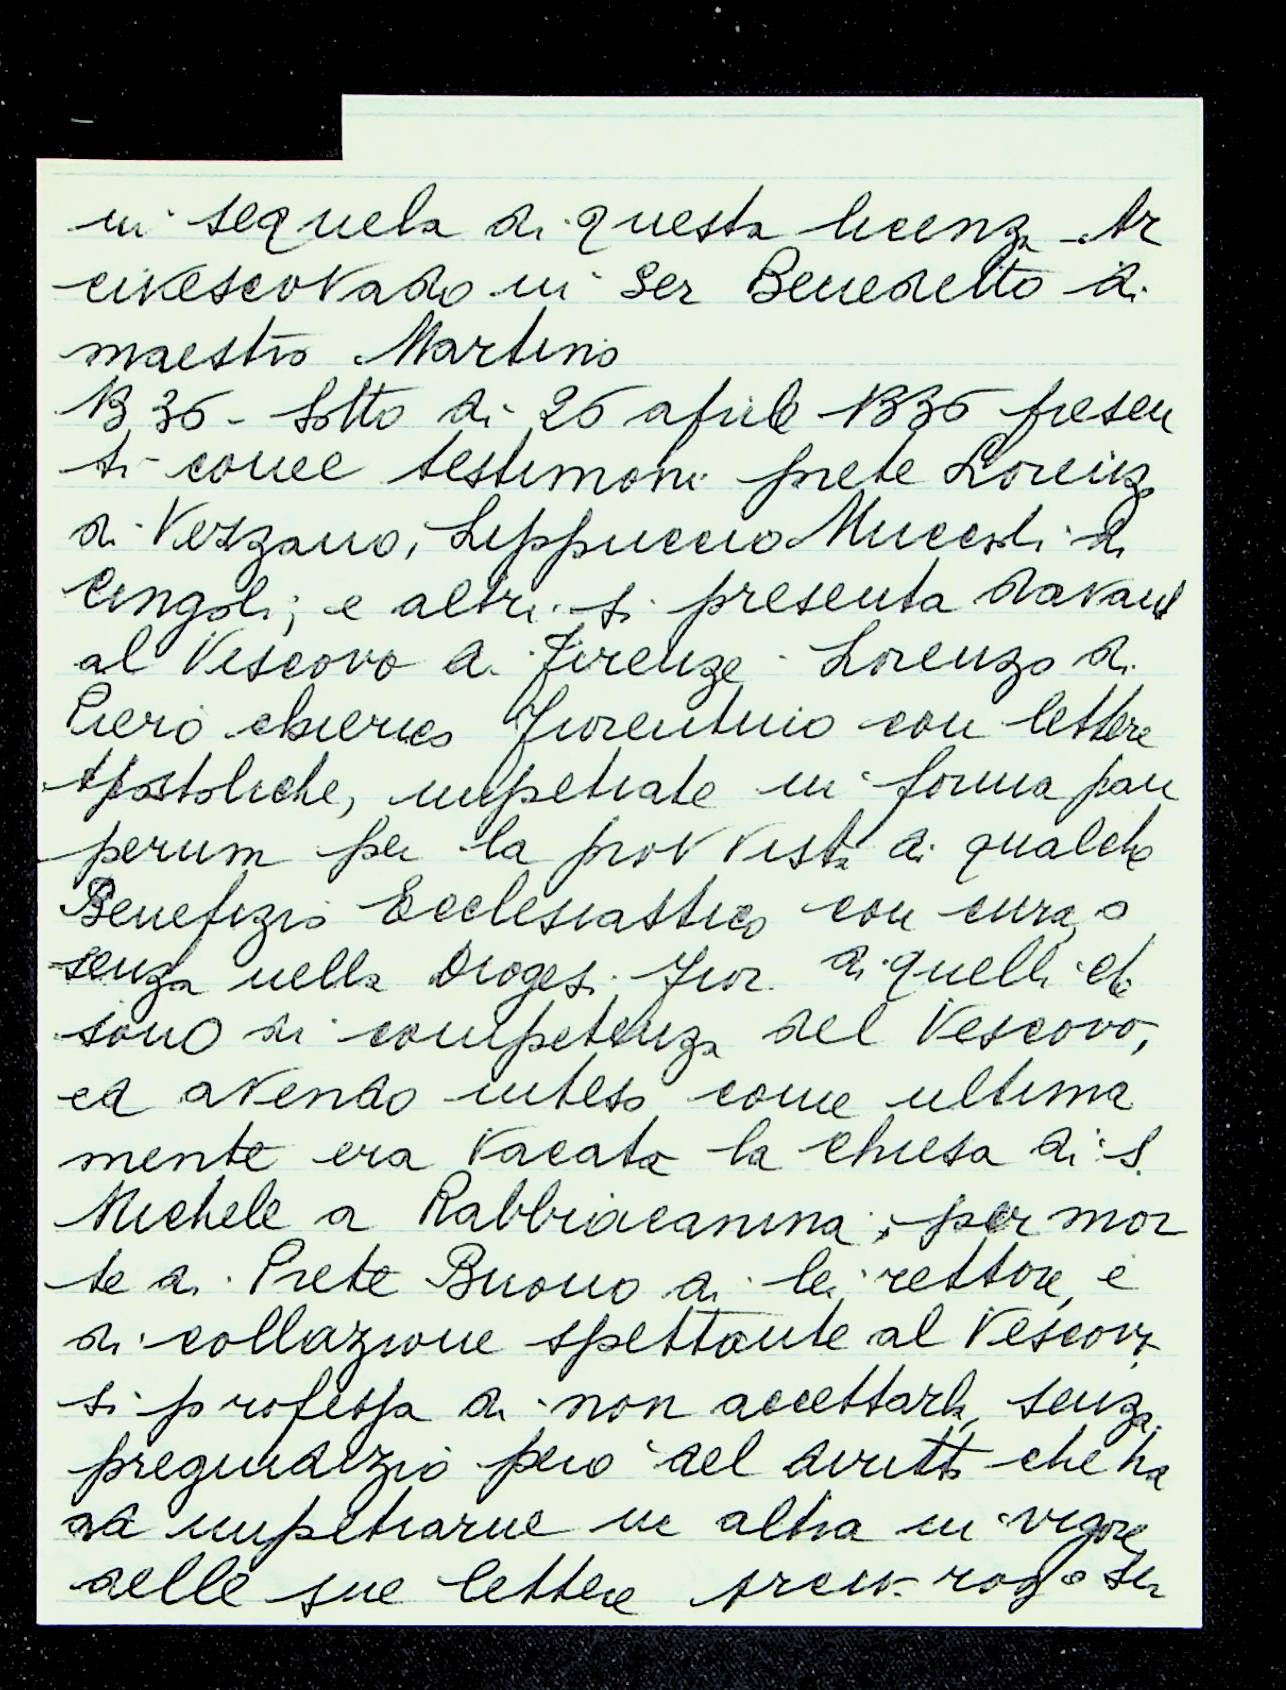 in sequela di questa licenza Ar
civescovado in Ser Benedetto di
maestro Martino
1336 - Sotto di 26 aprile 1336 presen
ti come testimoni prete Lorenzo
di Vezzano, Lippuccio Muccioli di
Cingoli; e altri. si presenta davant
al Vescovo di Firenze - Lorenzo di
Piero chierico fiorentino con lettere
Apostoliche, impetrate in forma pau
perum per la provvista di qualche
Benefizio Ecclesiastico con cura, o
senza nella Diogesi Fior. di quelli che
sono di competenza del Vescovo,
ed avendo inteso come ultima
mente era vacata la chiesa di S.
Michele a Rabbiacanina; per mor
te di Prete Buono di lei rettore, e
di collazione spettante al Vescovo,
si professa di non accettarla, senza
pregiudizio però del diritto che ha
ad impetrarne un altra in vigore
delle sue lettere rogo Ser